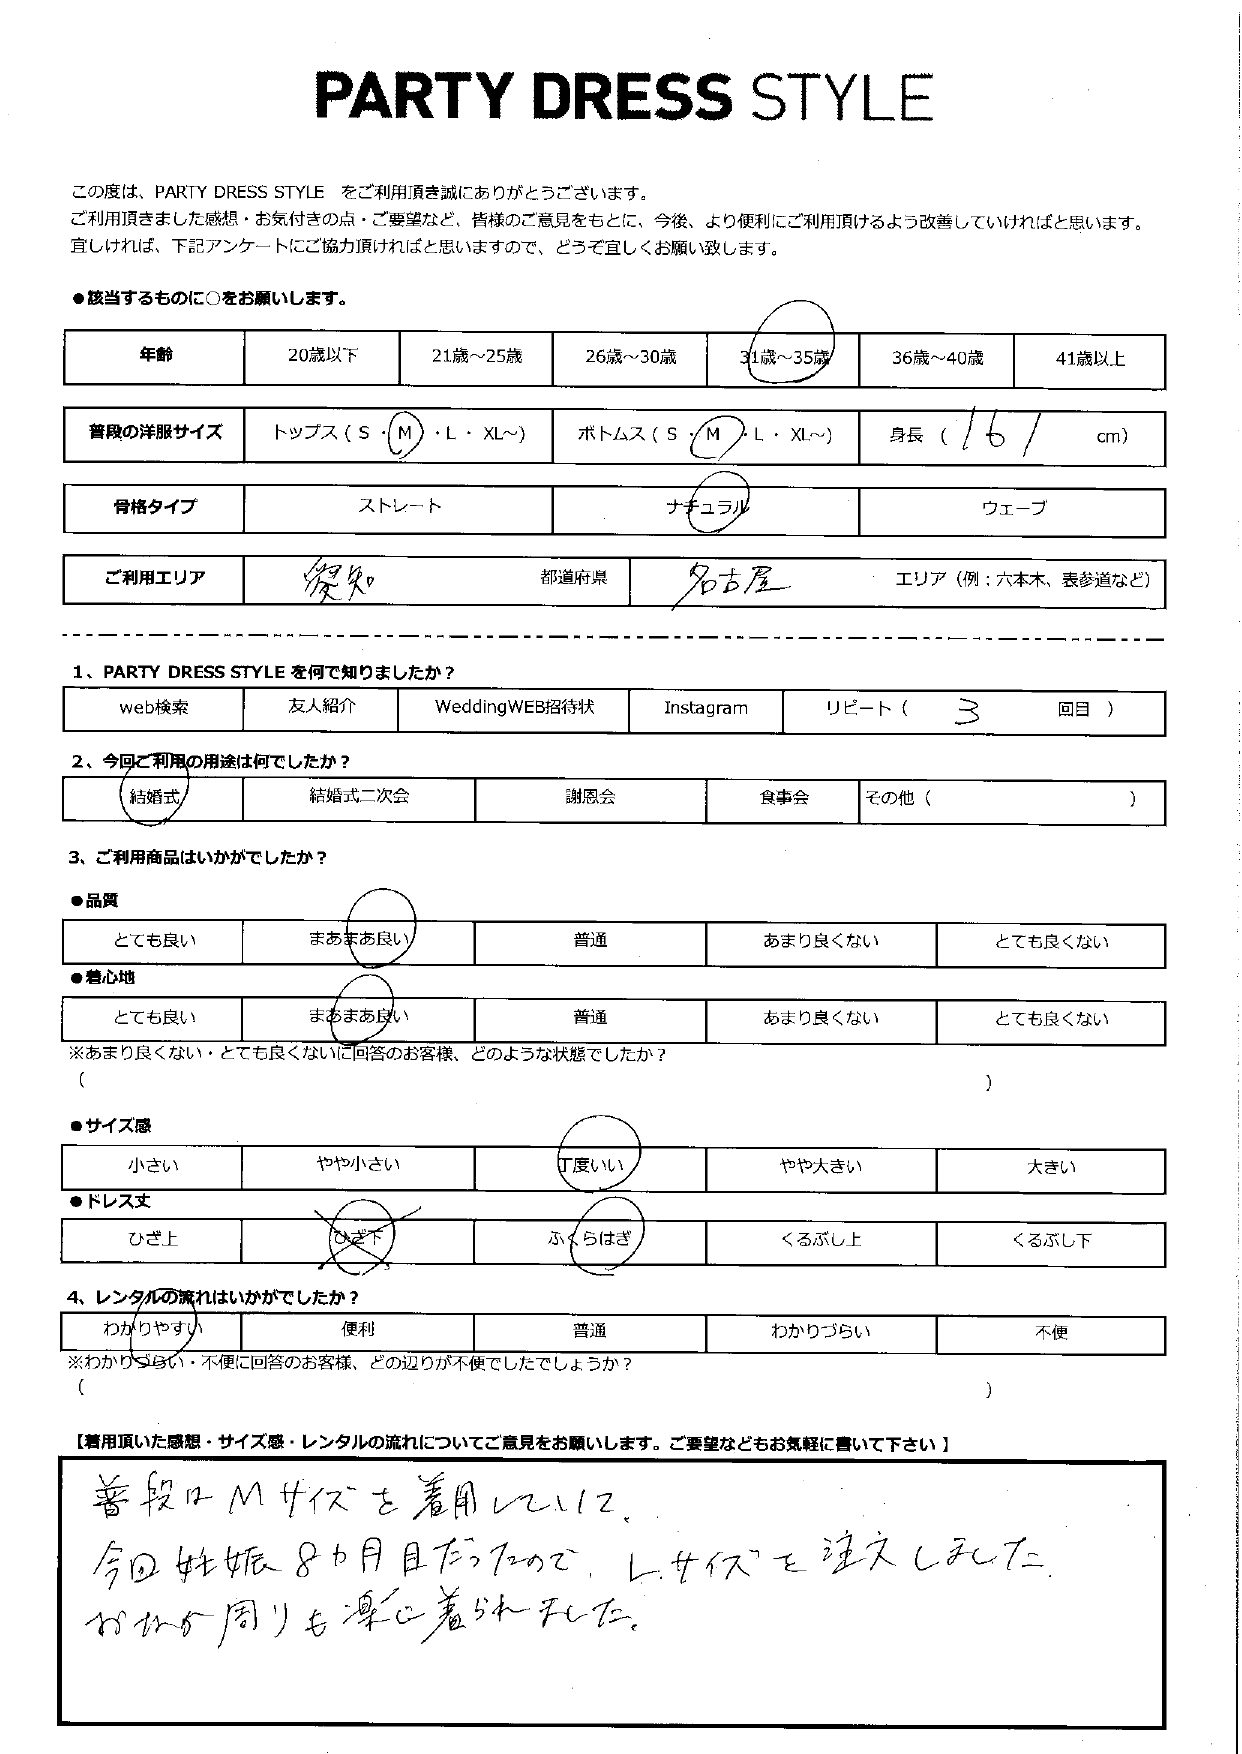 PARTY DRESS STYLE
この度は、PARTY DRESS STYLE をご利用頂き誠にありがとうございます。
ご利用頂きました感想・お気付きの点・ご要望など、皆様のご意見をもとに、今後、より便利にご利用頂けるよう改善していければと思います。
宜しければ、下記アンケートにご協力頂ければと思いますので、どうぞ宜しくお願い致します。
●該当するものに○をお願いします。
年齢 20歳以下 21歳～25歳 26歳～30歳 31歳～35歳 36歳～40歳 41歳以上
普段の洋服サイズ トップス ( S ・ M ・ L ・ XL～) ボトムス ( S ・ M ・ L ・ XL～) 身長 ( 161 cm)
骨格タイプ ストレート ナチュラル ウェーブ
ご利用エリア 愛知 都道府県 名古屋 エリア (例：六本木、表参道など)
1、PARTY DRESS STYLE を何で知りましたか？
web検索 友人紹介 WeddingWEB招待状 Instagram リピート ( 3 回目 )
2、今回ご利用の用途は何でしたか？
結婚式 結婚式二次会 謝恩会 食事会 その他 ( )
3、ご利用商品はいかがでしたか？
●品質
とても良い まあまあ良い 普通 あまり良くない とても良くない
●着心地
とても良い まあまあ良い 普通 あまり良くない とても良くない
※あまり良くない・とても良くないに回答のお客様、どのような状態でしたか？
( )
●サイズ感
小さい やや小さい 丁度いい やや大きい 大きい
●ドレス丈
ひざ上 ひざ下 ふくらはぎ くるぶし上 くるぶし下
4、レンタルの流れはいかがでしたか？
わかりやすい 便利 普通 わかりづらい 不便
※わかりづらい・不便に回答のお客様、どの辺りが不便でしたでしょうか？
( )
【着用頂いた感想・サイズ感・レンタルの流れについてご意見をお願いします。ご要望などもお気軽に書いて下さい】
普段はMサイズを着用していて、
今回妊娠8カ月目だったので、Lサイズを注文しました。
おなか周りも楽に着られました。